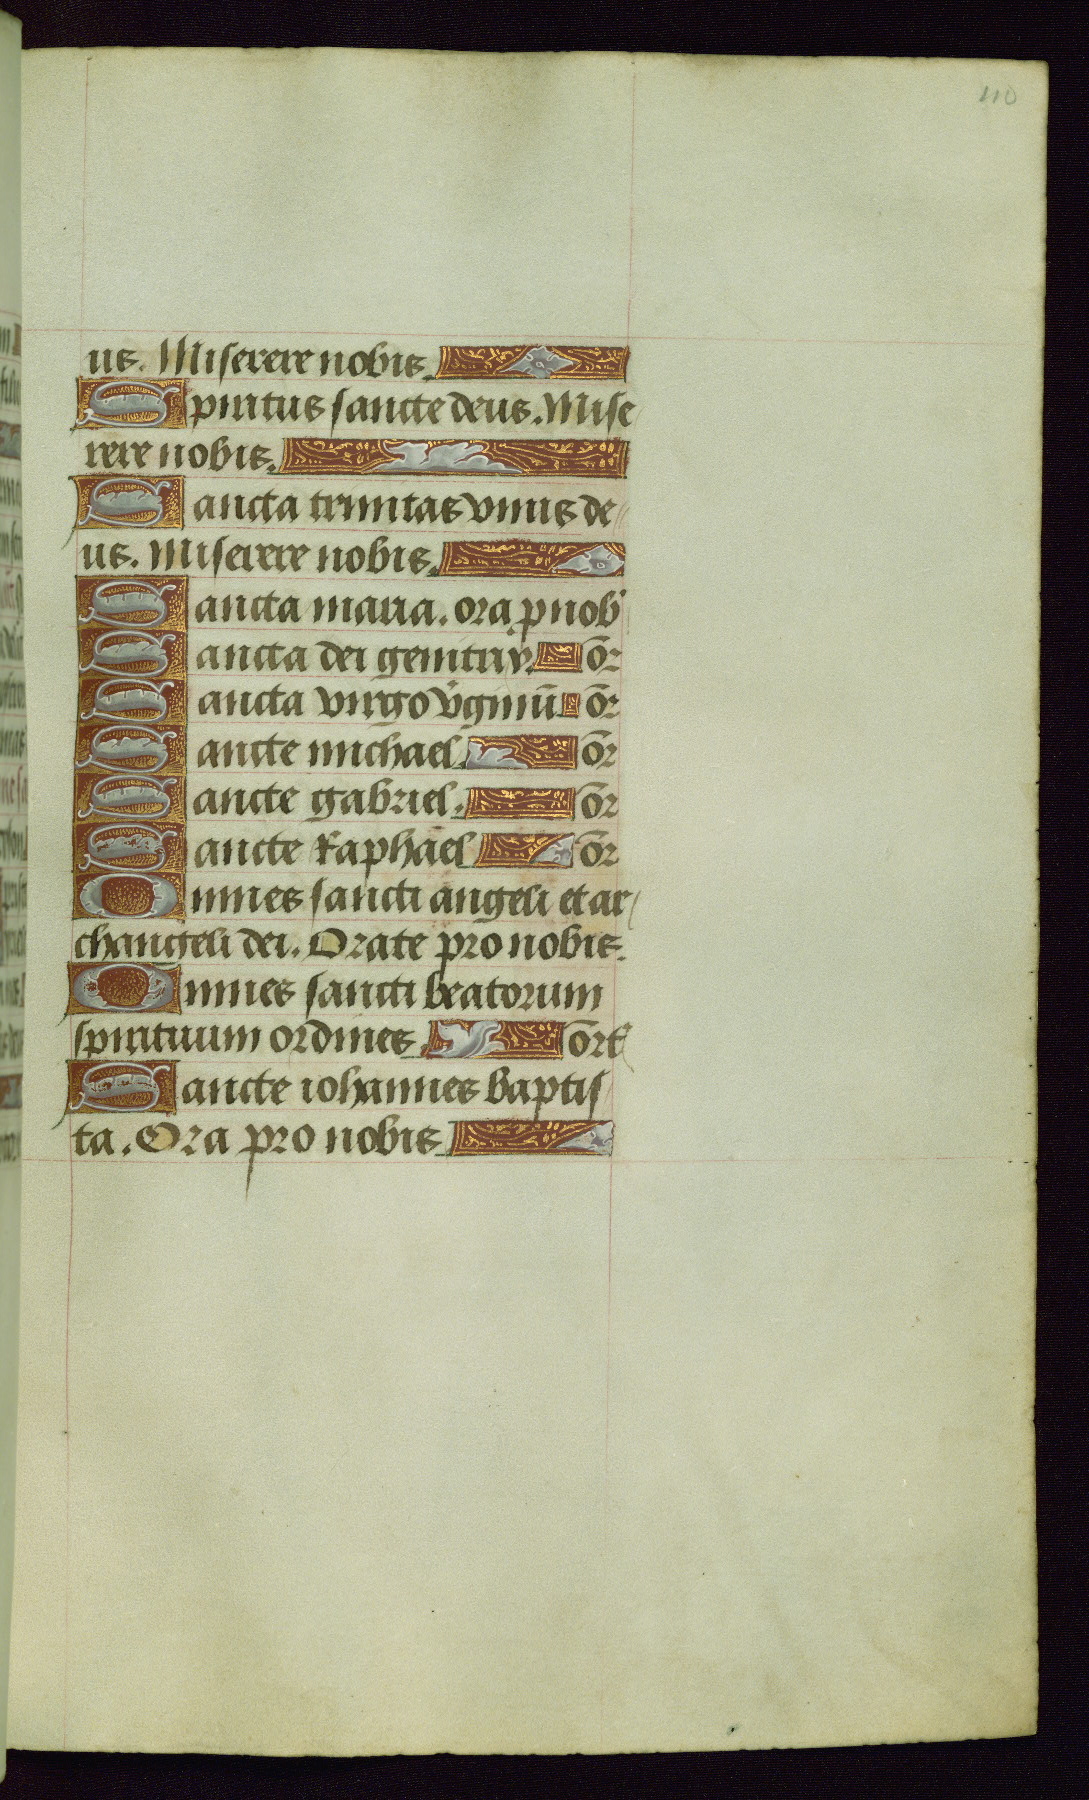 110
us. Miserere nobis.
Spiritus sancte deus. Mise
rere nobis.
Sancta trinitas vnus de
us. Miserere nobis.
Sancta maria. ora p nob
Sancta dei genitrix or̄
Sancta virgo v̄ginū or̄
Sancte michael. or̄
Sancte gabriel. or̄
Sancte Raphael or̄
Omnes sancti angeli et ar
changeli dei. Orate pro nobis.
Omnes sancti beatorum
spirituum ordines. ort̄
Sancte iohannes baptis
ta. Ora pro nobis